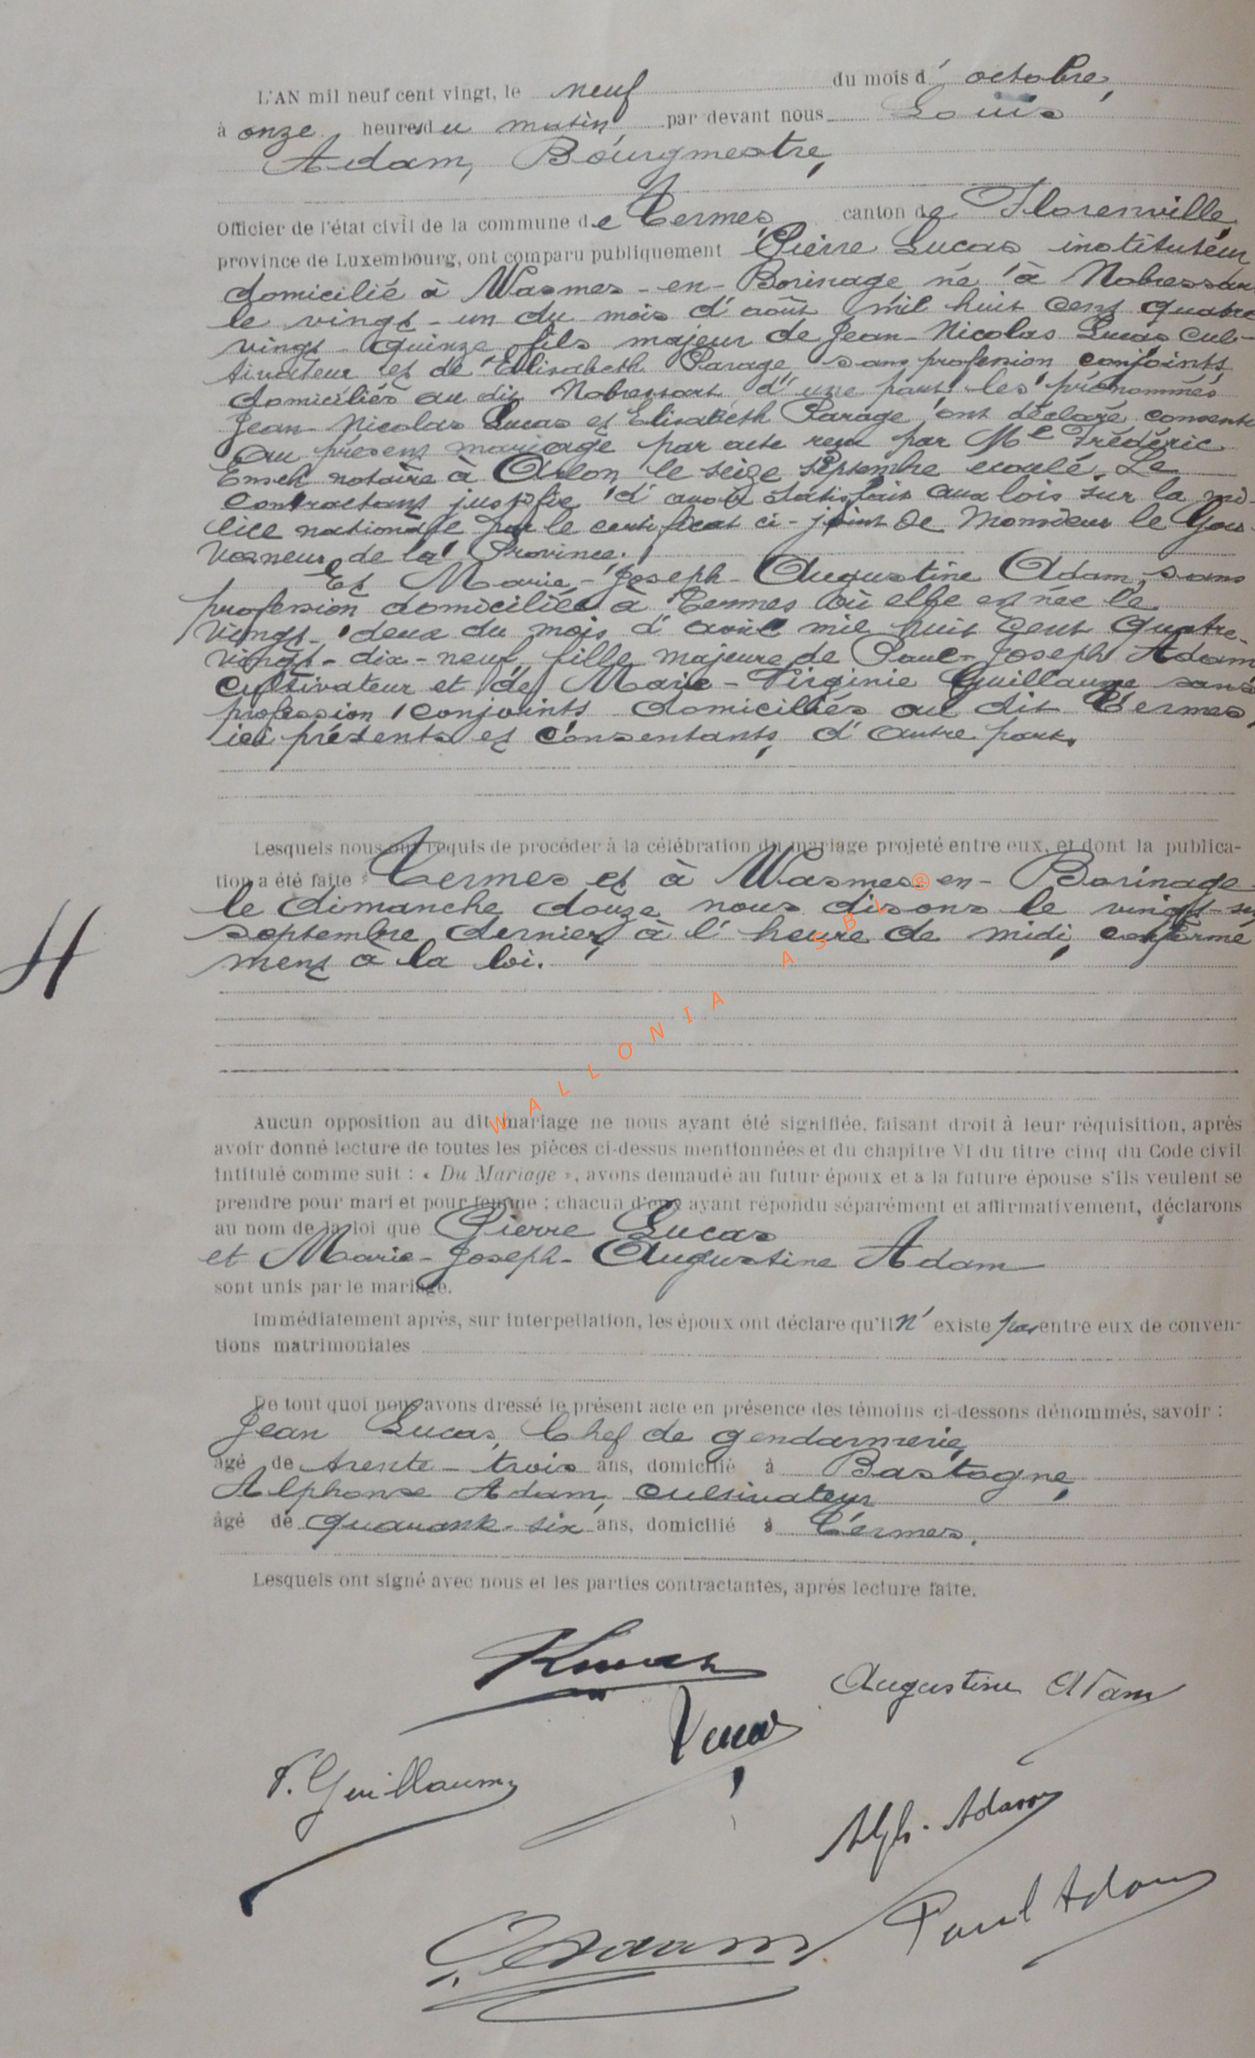 L'AN mil neuf cent vingt, le neuf du mois d' octobre,
à onze heures du matin, par devant nous Louis
Adam, Bourgmestre,
Officier de l'état civil de la commune de Termes, canton de Florenville,
province de Luxembourg, ont comparu publiquement Pierre Lucas instituteur
domicilié à Wasmes-en-Borinage né à Nobressart
le vingt-un du mois d'août mil huit cent quatre
vingt-quinze fils majeur de Jean-Nicolas Lucas cul-
tivateur et de Elisabeth Parage, sans profession conjoints
domiciliés au dit Nobressart d'une part, les prénommés
Jean-Nicolas Lucas et Elisabeth Parage ont déclaré consentir
au présent mariage par acte reçu par Me Frédéric
notaire à Arlon le seize septembre écoulé. Le
contractant justifie d'avoir satisfait aux lois sur la mi-
lice nationale par le certificat ci-joint de Monsieur le Gou-
verneur de la Province.
Et Marie-Joseph-Augustine Adam, sans
profession domiciliée à Termes où elle est née le
vingt-deux du mois d'avril mil huit cent quatre-
vingt-dix-neuf, fille majeure de Paul-Joseph Adam
cultivateur et de Marie-Virginie Guillaume sans
profession, conjoints domiciliés au dit Termes,
ici présents et consentants, d'autre part.
Lesquels nous ont requis de procéder à la célébration du mariage projeté entre eux, et dont la publica-
tion a été faite à Termes et à Wasmes-en-Borinage
le dimanche douze nous disons le vingt-six
septembre dernier, à l'heure de midi, conformé
ment à la loi.
WALLONIA ASBL ®
Aucun opposition au dit mariage ne nous ayant été signifiée, faisant droit à leur réquisition, après
avoir donné lecture de toutes les pièces ci-dessus mentionnées et du chapitre VI du titre cinq du Code civil
intitulé comme suit : « Du Mariage », avons demandé au futur époux et a la future épouse s'ils veulent se
prendre pour mari et pour femme ; chacun d'eux ayant répondu séparément et affirmativement, déclarons
au nom de la loi que Pierre Lucas
et Marie-Joseph-Augustine Adam
sont unis par le mariage.
Immédiatement après, sur interpellation, les époux ont déclare qu'il n' existe pas entre eux de conven-
tions matrimoniales
De tout quoi nous avons dressé le présent acte en présence des témoins ci-dessons dénommés, savoir :
Jean Lucas, Chef de gendarmerie,
âgé de trente-trois ans, domicilié à Bastogne,
Alphonse Adam, cultivateur
âgé de quarante-six ans, domicilié à Termes.
Lesquels ont signé avec nous et les parties contractantes, après lecture faite.
Augustine Adam
Lucas
V. Guillaume
Alph. Adam
Paul Adam
Adam